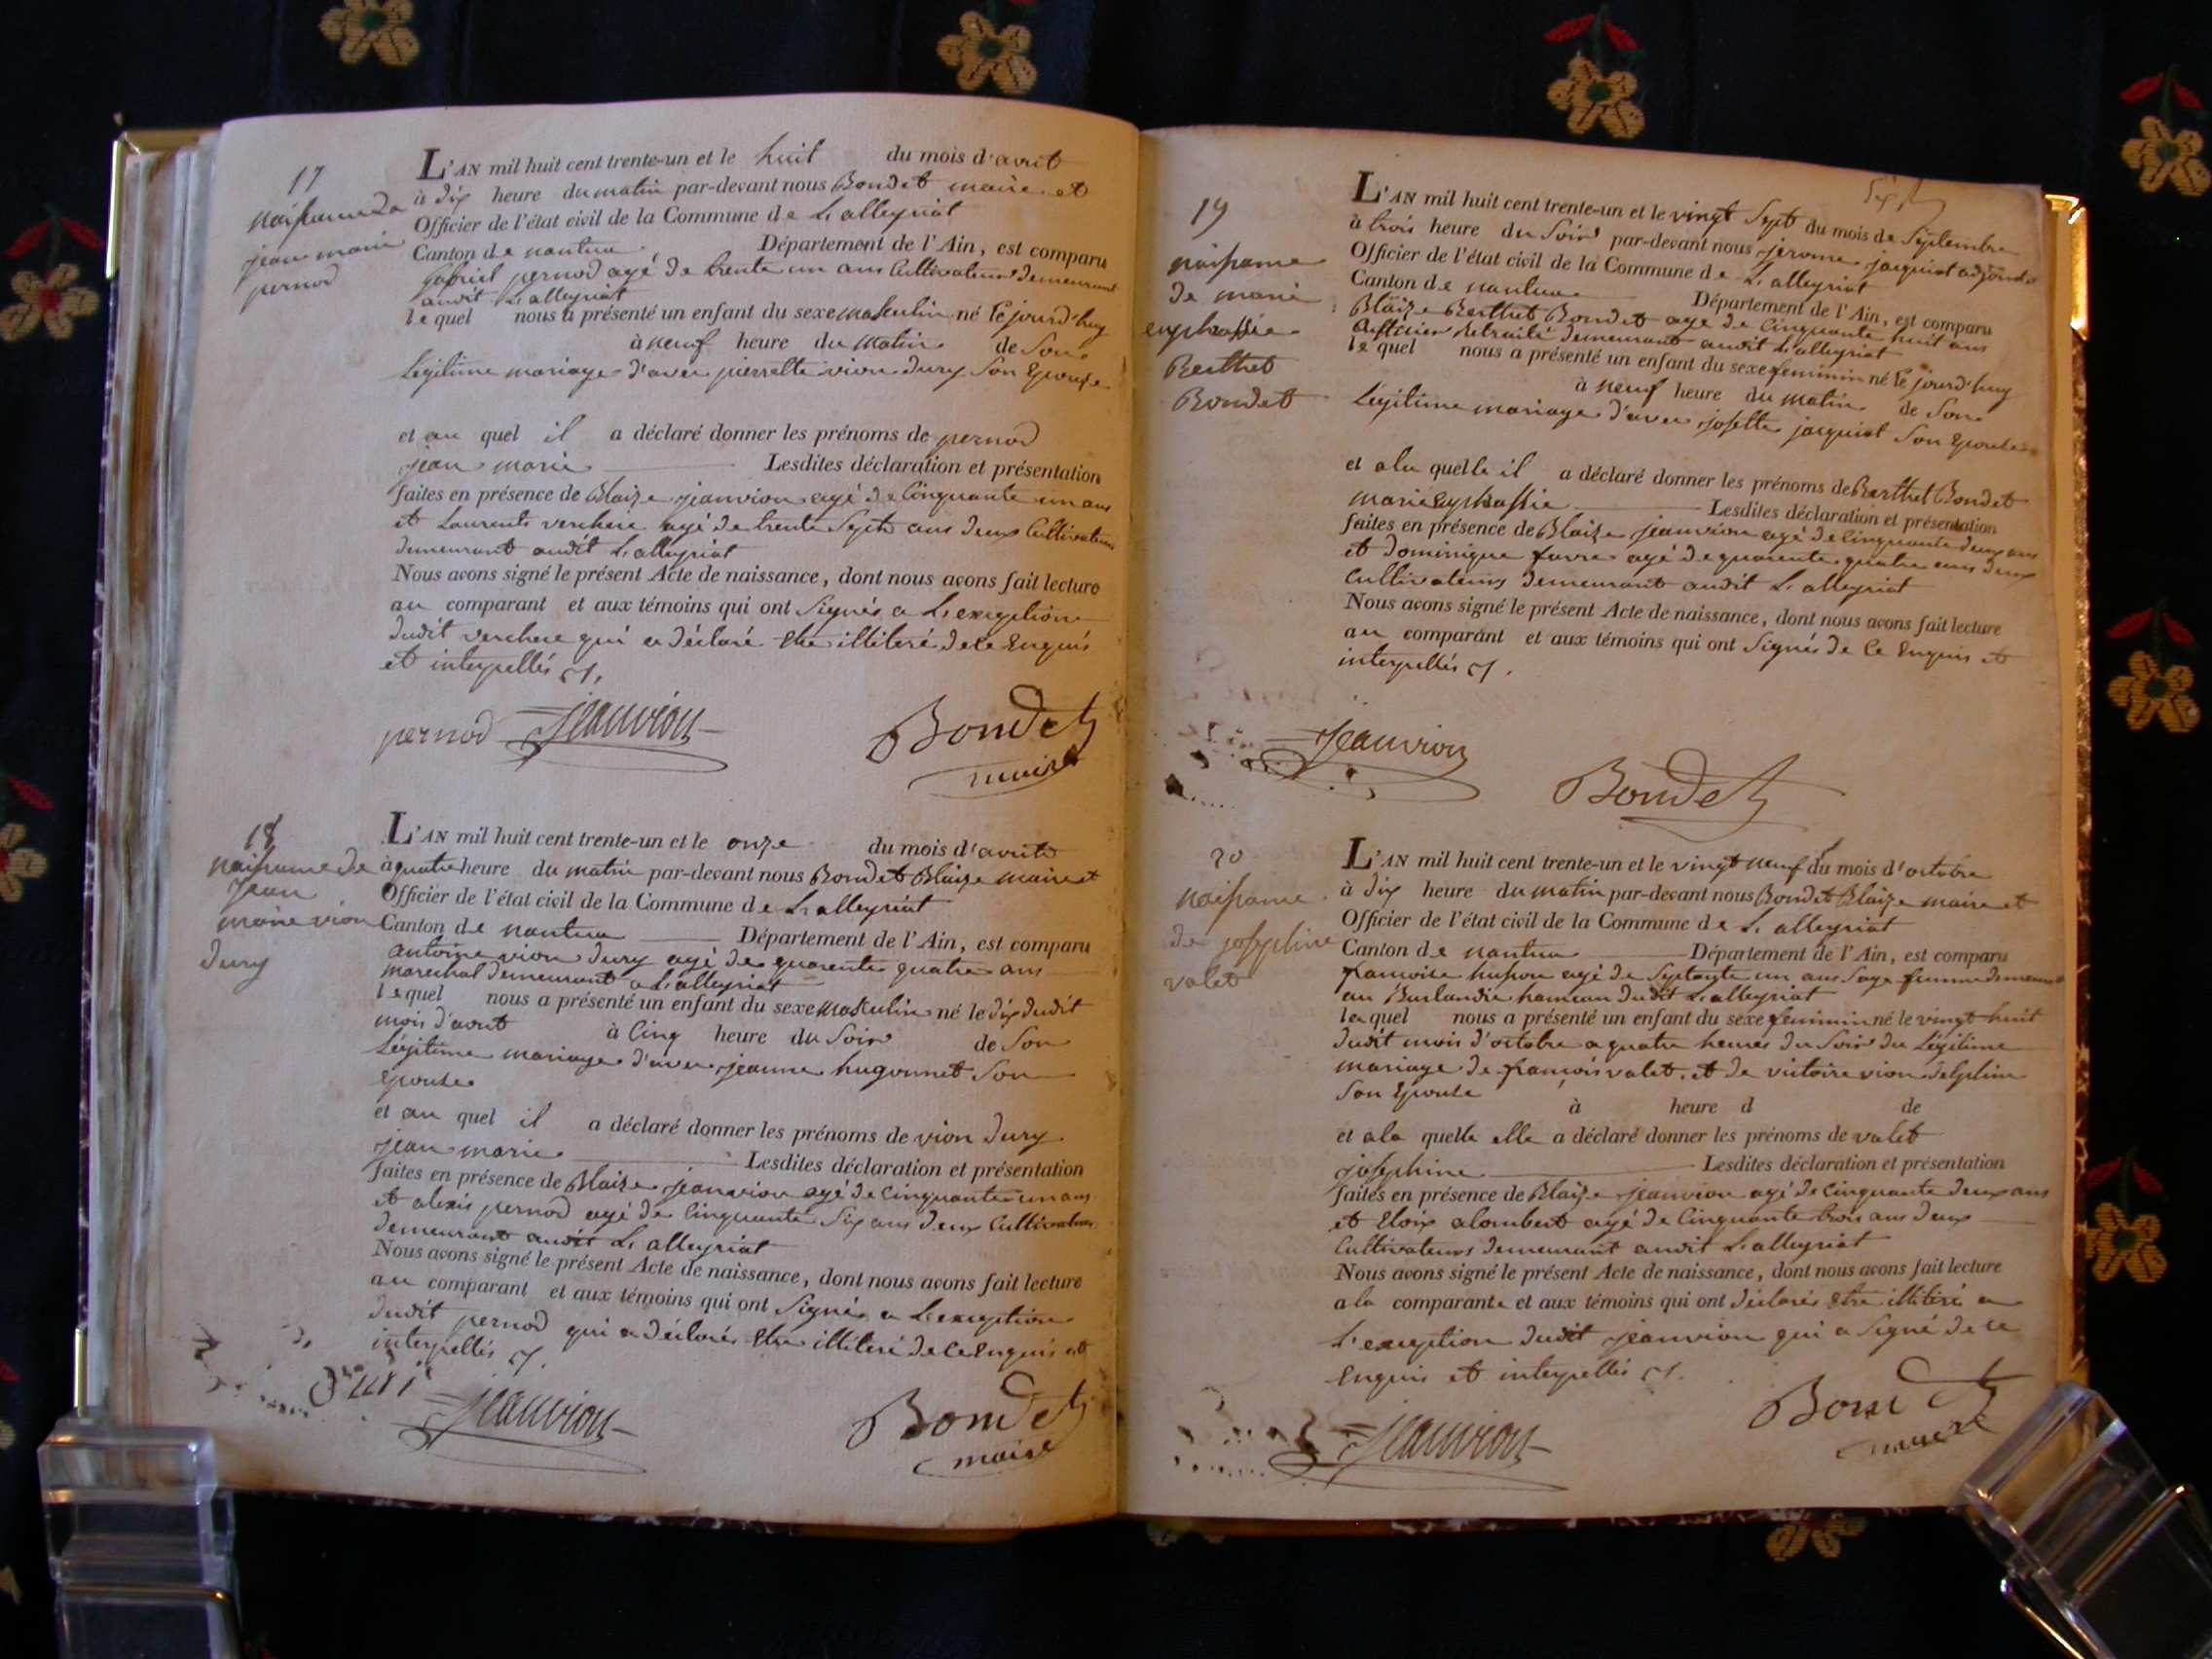 17
naissance de
jean marie
pernod
L'AN mil huit cent trente-un et le huit du mois d'avril
à dix heure du matin par-devant nous Bondet maire et
Officier de l'état civil de la Commune de L'alleyriat
Canton de nantua Département de l'Ain, est comparu
gabriel pernod agé de trente un ans Cultivateur demeurant
audit L'alleyriat
lequel nous a présenté un enfant du sexe masculin né le jourd'huy
à neuf heure du matin de Son
Légitime mariage d'avec pierrette vion dury Son Epouse
et au quel il a déclaré donner les prénoms de pernod
jean marie Lesdites déclaration et présentation
faites en présence de Blaize jeanvion agé de Cinquante un ans
et Laurents verchere agé de trente Sept ans deux Cultivateurs
demeurant audit L'alleyriat
Nous avons signé le présent Acte de naissance, dont nous avons fait lecture
au comparant et aux témoins qui ont Signés a L'exeption
dudit verchere qui a déclaré etre illiteré de ce Enquis
et interpellés
pernod jeanvion Bondet
maire
18
naissance de
Jean
marie vion
dury
L'AN mil huit cent trente-un et le onze du mois d'avril
à quatre heure du matin par-devant nous Bondet Blaize maire et
Officier de l'état civil de la Commune de L'alleyriat
Canton de nantua Département de l'Ain, est comparu
antoine vion dury agé de quarente quatre ans
marechal demeurant a L'alleyriat
lequel nous a présenté un enfant du sexe masculin né le dix dudit
mois d'avril à Cinq heure du Soir de Son
Légitime mariage d'avec jeanne hugonnet Son
Epouse
et au quel il a déclaré donner les prénoms de vion dury
jean marie Lesdites déclaration et présentation
faites en présence de Blaize jeanvion agé de Cinquante un ans
et alexis pernod agé de Cinquante Six ans deux Cultivateurs
demeurant audit L'alleyriat
Nous avons signé le présent Acte de naissance, dont nous avons fait lecture
au comparant et aux témoins qui ont Signés a L'exeption
dudit pernod qui a déclaré etre illiteré de ce Enquis et
interpellés
jeanvion Bondet
maire
19
naissance
de marie
euphrassie
Berthet
Bondet
L'AN mil huit cent trente-un et le vingt Sept du mois de Septembre
à trois heure du Soir par-devant nous jerome jacquiot adjoint
Officier de l'état civil de la Commune de L'alleyriat
Canton de nantua Département de l'Ain, est comparu
Blaize Berthet Bondet agé de Cinquante huit ans
officier Retraité demeurant audit L'alleyriat
lequel nous a présenté un enfant du sexe feminin né le jourd'huy
à neuf heure du matin de Son
Légitime mariage d'avec josette jacquiot Son Epouse
et a la quelle il a déclaré donner les prénoms de Berthet Bondet
marie Euphrassie Lesdites déclaration et présentation
faites en présence de Blaize jeanvion agé de Cinquante deux ans
et dominique favre agé de quarente quatre ans deux
Cultivateurs demeurant audit L'alleyriat
Nous avons signé le présent Acte de naissance, dont nous avons fait lecture
au comparant et aux témoins qui ont Signés de Ce Enquis et
interpellés
jeanvion
Bondet
20
naissance
de josephine
valet
L'AN mil huit cent trente-un et le vingt neuf du mois d'octobre
à dix heure du matin par-devant nous Bondet Blaize maire et
Officier de l'état civil de la Commune de L'alleyriat
Canton de nantua Département de l'Ain, est comparu
francoise agé de Septante un ans Sage femme
au Burlandie hameau dudit L'alleyriat
laquel nous a présenté un enfant du sexe feminin né le vingt huit
dudit mois d'octobre a quatre heures du Soir du Légitime
mariage de francois valet et de victoire vion delphin
Son Epouse
à heure d de
et a la quelle elle a déclaré donner les prénoms de valet
josephine Lesdites déclaration et présentation
faites en présence de Blaize jeanvion agé de Cinquante deux ans
et Eloix alombert agé de Cinquante trois ans deux
Cultivateurs demeurant audit L'alleyriat
Nous avons signé le présent Acte de naissance, dont nous avons fait lecture
a la comparante et aux témoins qui ont déclarés etre illiteré a
L'exeption dudit jeanvion qui a Signé de ce
Enquis et interpellés
jeanvion Bondet
maire